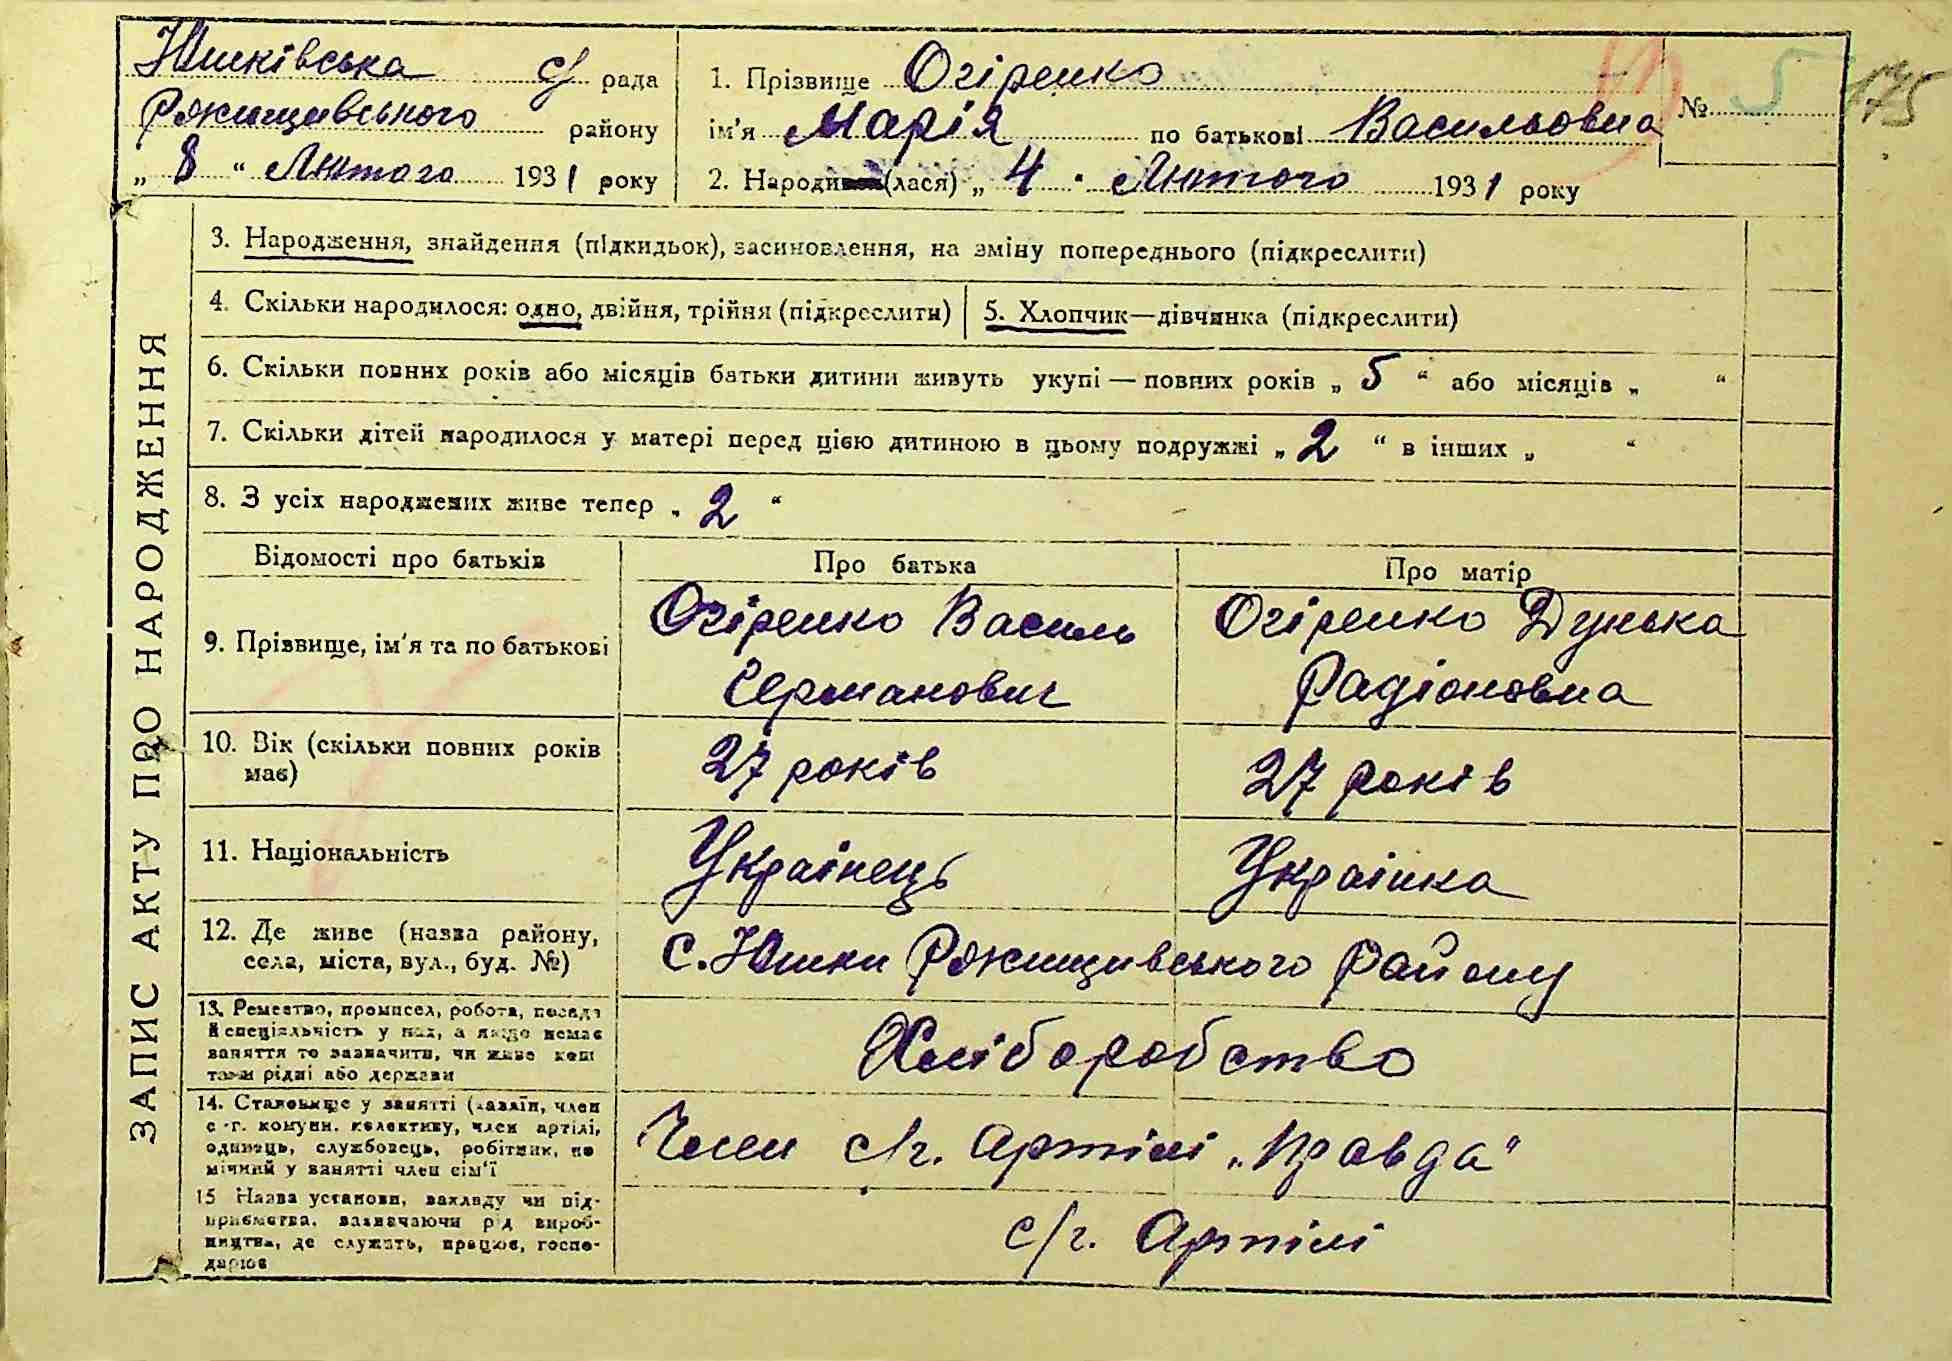 Юшківська с/ рада
Ржищивського району
„ 8 “ Лютого 1931 року
1. Прізвище Огіренко
ім'я Марія по батькові Васильовна
2. Народився (лася) „ 4 . Лютого 1931 року
№ 5 175
ЗАПИС АКТУ ПРО НАРОДЖЕННЯ
3. Народження, знайдення (підкидьок), засиновлення, на зміну попереднього (підкреслити)
4. Скільки народилося: одно, двійня, трійня (підкреслити)
5. Хлопчик—дівчинка (підкреслити)
6. Скільки повних років або місяців батьки дитини живуть укупі — повних років „ 5 “ або місяців „ “
7. Скільки дітей народилося у матері перед цією дитиною в цьому подружжі „ 2 “ в інших „ “
8. З усіх народжених живе тепер „ 2 “
Відомості про батьків Про батька Про матір
9. Прізвище, ім'я та по батькові
Огіренко Василь
Германович
Огіренко Дунька
Радіоновна
10. Вік (скільки повних років
має)
27 років
27 років
11. Національність
Українець
Украінка
12. Де живе (назва району,
села, міста, вул., буд. №)
С. Юшки Ржищивського Району
13. Ремество, промисел, робота, посада
й спеціяльність у них, а якщо немає
заняття то зазначити, чи живе кош
тами рідні або держави
Хліборобство
14. Становище у занятті (хазяїн, член
с.-г. комуни, колективу, член артілі,
одинець, службовець, робітник, по
мічний у занятті член сім'ї
Член с/г. Артілі „Правда“
15 Назва установи, закладу чи під-
приємства, зазначаючи рід вироб-
ництва, де служить, працює, госпо-
дарює
с/г. Артілі